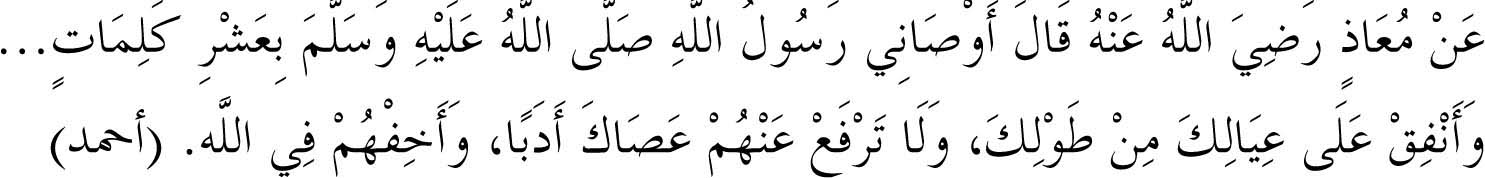 عَنْ مُعَاذٍ رَضِيَ اللَّهُ عَنْهُ قَالَ أَوْصَانِي رَسُولُ اللَّهِ صَلَّى اللَّهُ عَلَيْهِ وَسَلَّمَ بِعَشْرِ كَلِمَاتٍ...
وَأَنْفِقْ عَلَى عِيَالِكَ مِنْ طَوْلِكَ، وَلَا تَرْفَعْ عَنْهُمْ عَصَاكَ أَدَبًا، وَأَخِفْهُمْ فِي اللَّه. (أحمد)